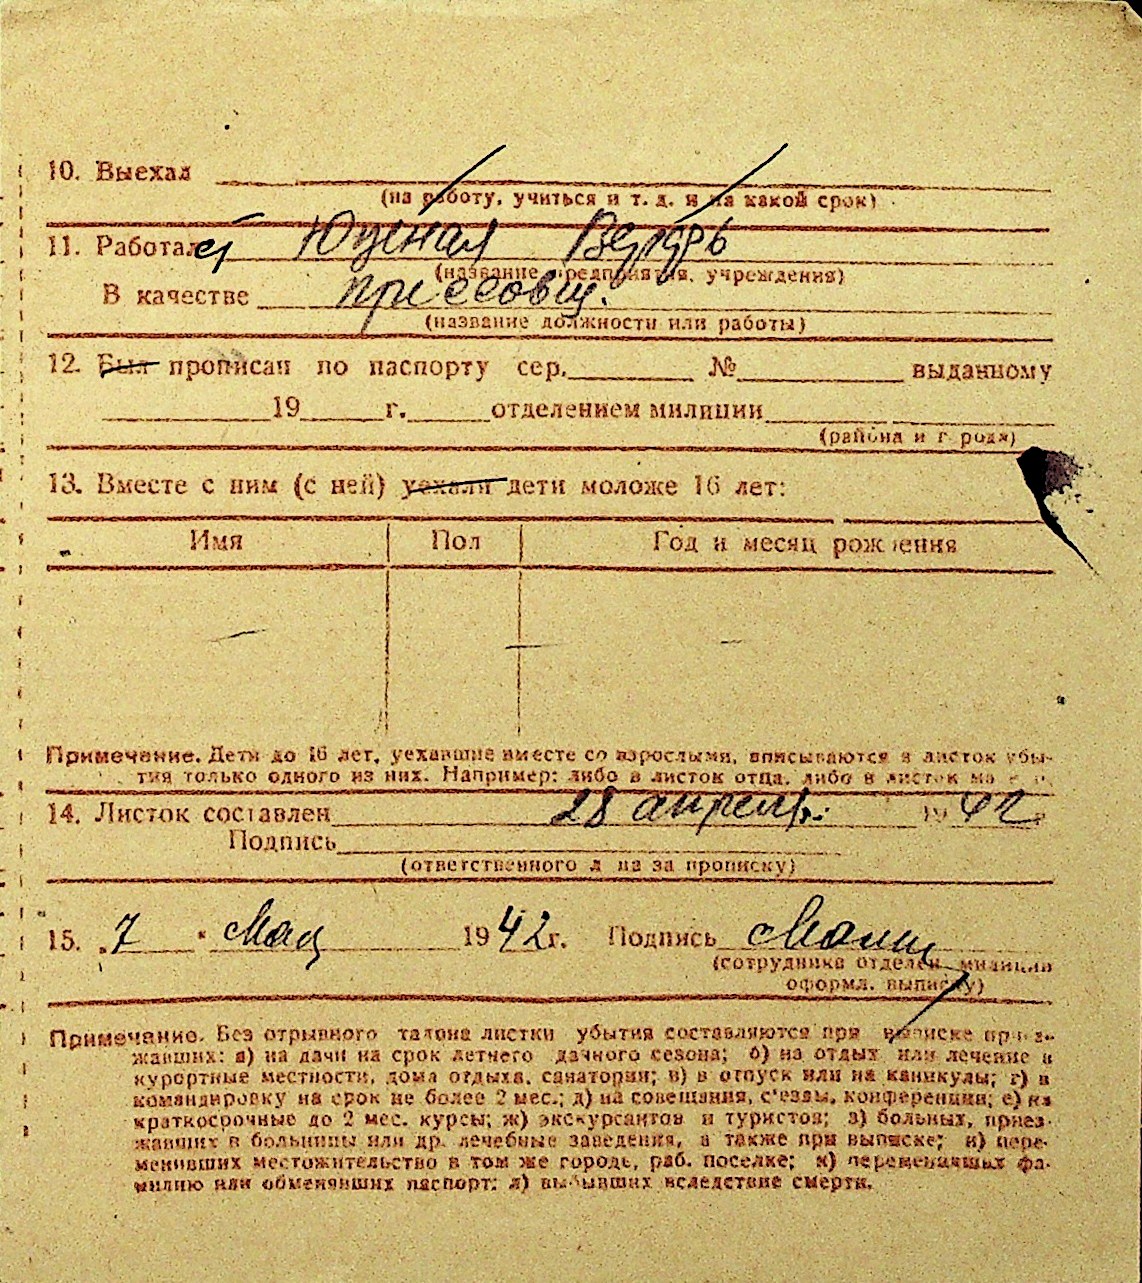 10. Выехал
(на работу, учиться и т. д. и на какой срок)
11. Работает
(название предприятия, учреждения)
В качестве прессовщ.
(название должности или работы)
12. Был прописан по паспорту сер. № выданному
19 г. отделением милиции
(района и города)
13. Вместе с ним (с ней) уехали дети моложе 16 лет:
Имя Пол Год и месяц рождения
Примечание. Дети до 16 лет, уехавшие вместе со взрослыми, вписываются в листок убы-
тия только одного из них. Например: либо в листок отца, либо в листок
14. Листок составлен 28 апреля 1942
Подпись
(ответственного лица за прописку)
15. „7" Мая 1942 г. Подпись
(сотрудника отделен. милиции
оформл. выписку)
Примечание. Без отрывного талона листки убытия составляются при выписке приез-
жавших: а) на дачи на срок летнего дачного сезона; б) на отдых или лечение в
курортные местности, дома отдыха, санатории; в) в отпуск или на каникулы; г) в
командировку на срок не более 2 мес.; д) на совещания, с'езды, конференции; е) на
краткосрочные до 2 мес. курсы; ж) экскурсантов и туристов; з) больных, приез-
жавших в больницы или др. лечебные заведения, а также при выписке; и) пере-
менивших местожительство в том же городе, раб. поселке; к) переменивших фа-
милию или обменявших паспорт; л) выбывших вследствие смерти.